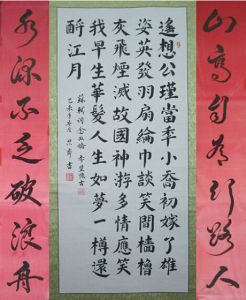 山高自有行路人
遙想公瑾當秊小喬初嫁了雄
姿英發羽扇綸巾談笑間檣櫓
灰飛煙滅故國神游多情應笑
我早生華髮人生如夢一樽還
酹江月
蘇軾詞念奴嬌 赤壁懷古
水深不乏破浪舟